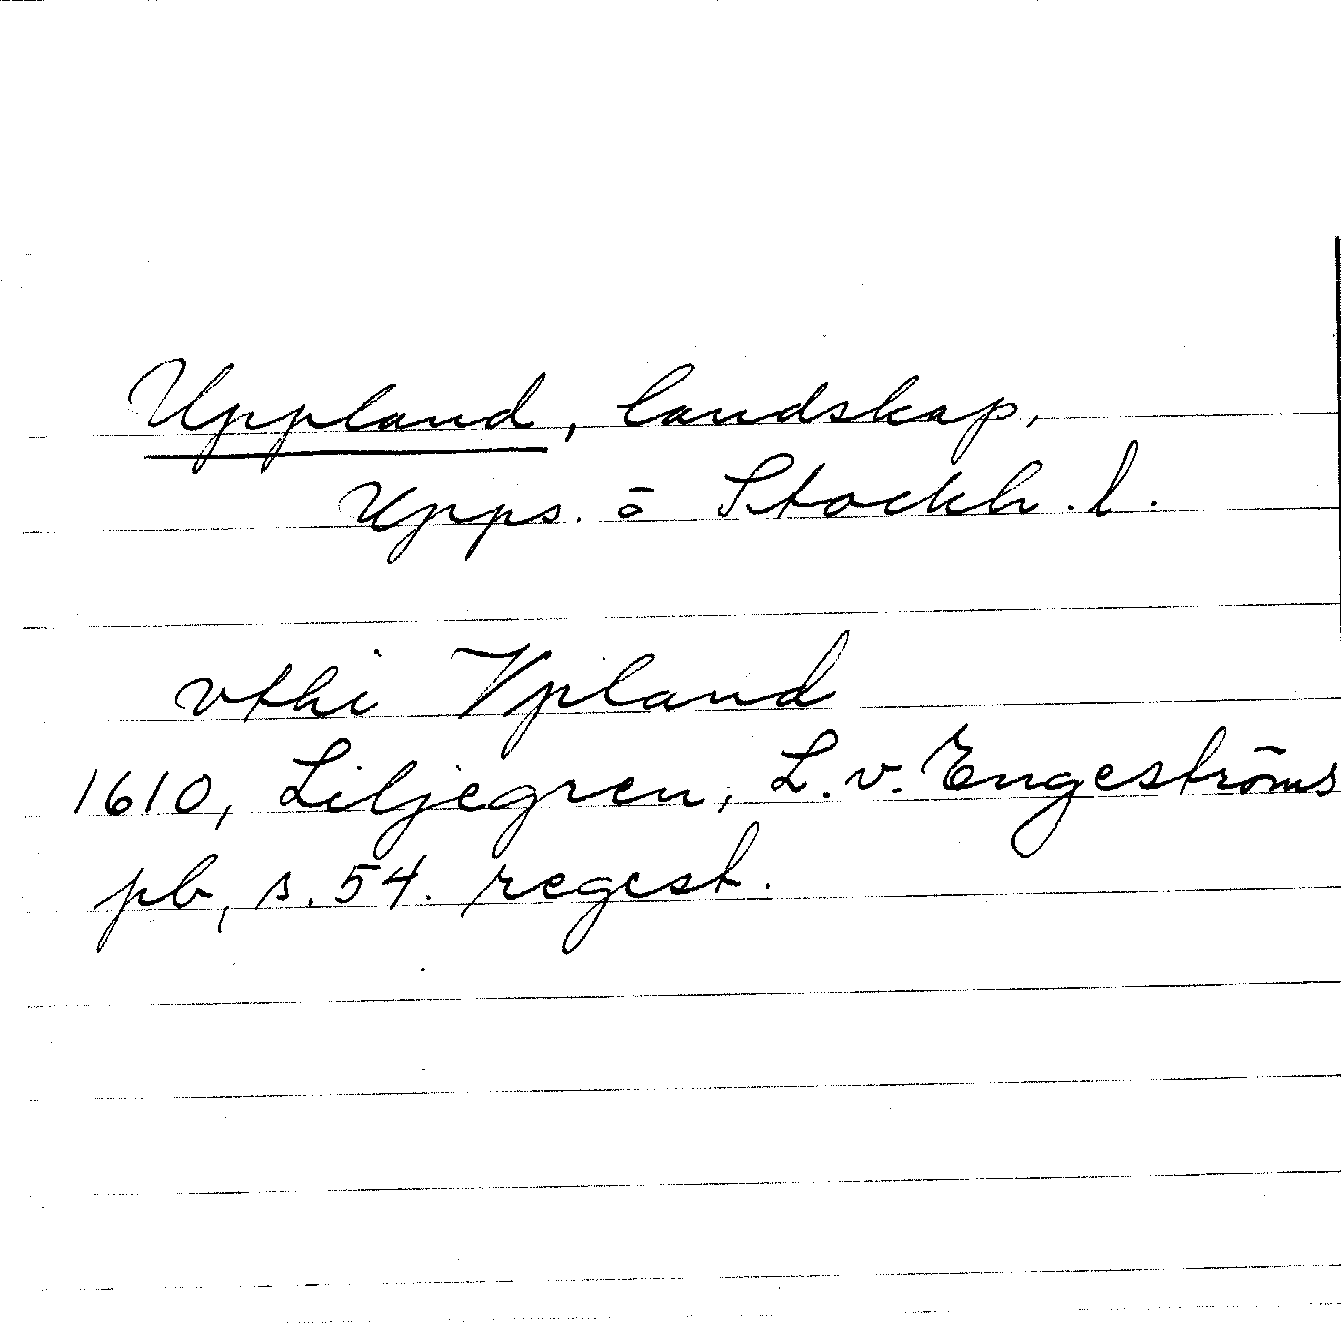 Uppland, landskap,
Upps. ō Stockh. l.
vthi Vpland
1610, Liljegren, L. v. Engeströms
pb, s. 54. regest.